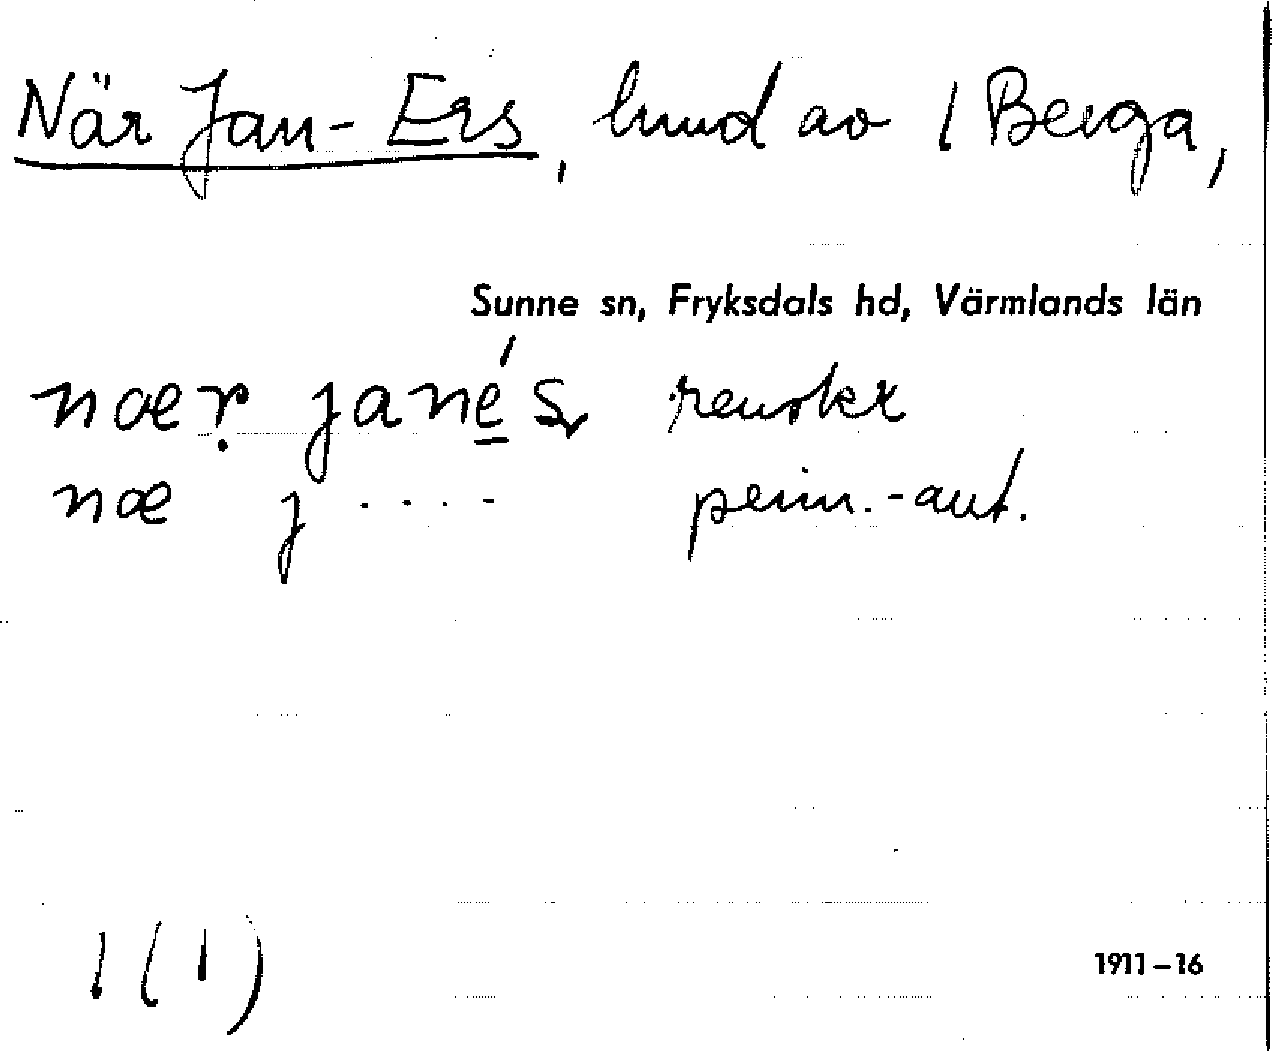 När Jan-Ers, hmd av 1 Berga,
Sunne sn, Fryksdals hd, Värmlands län
næṛ janés renskr
næ j . . . . - prim.-ant.
1 (1)
1911–16